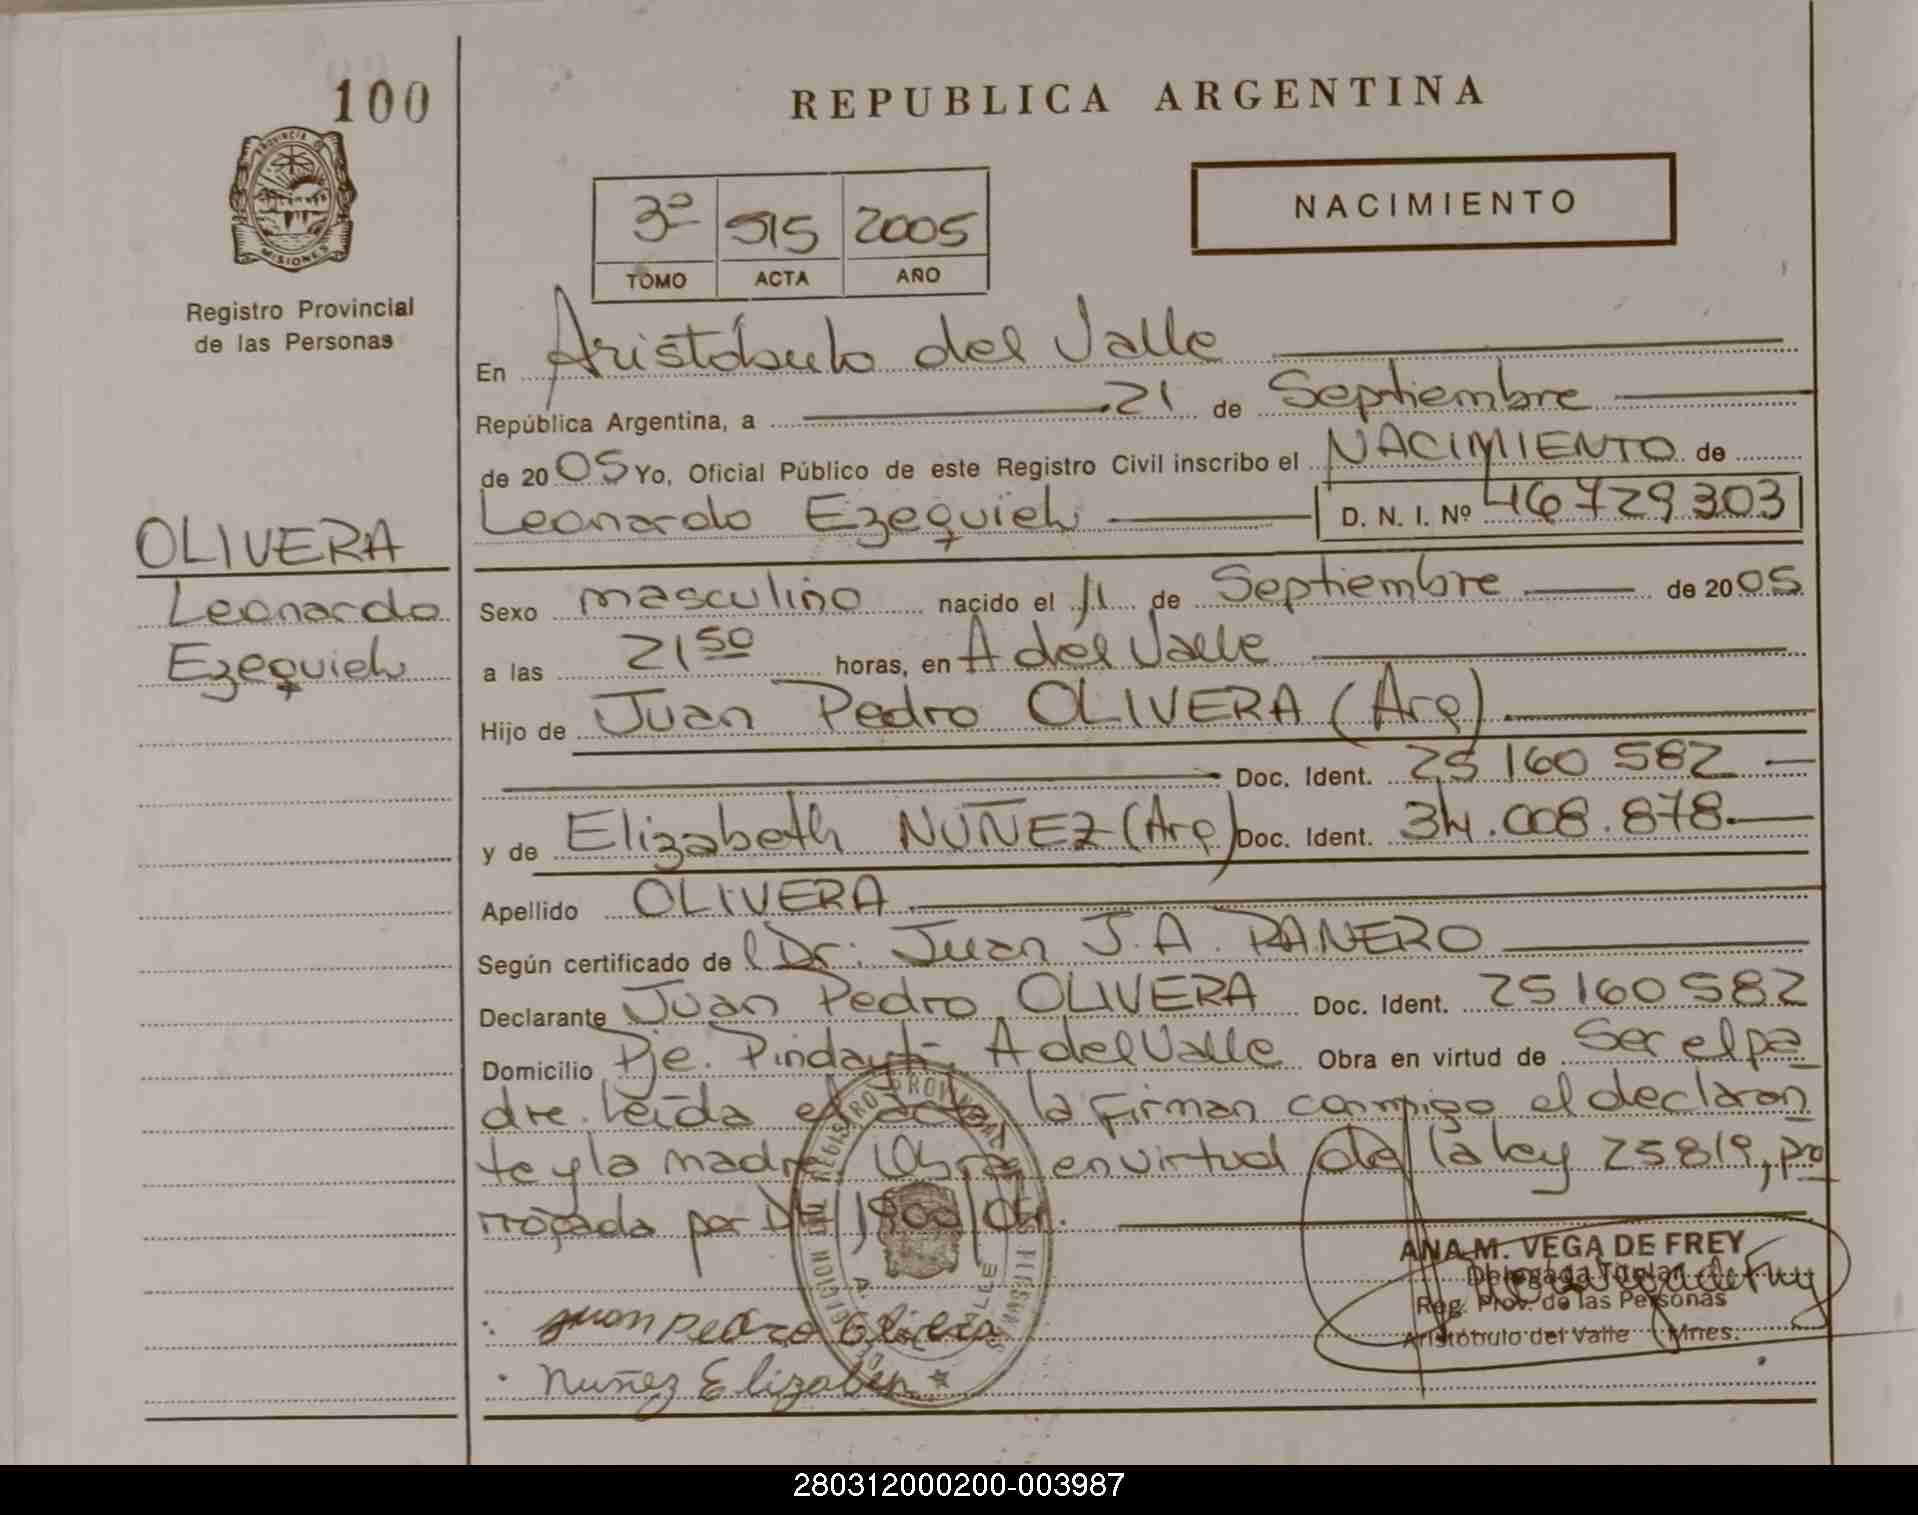 100
REPUBLICA ARGENTINA
PROVINCIA DE
MISIONES
NACIMIENTO
3º 515 2005
TOMO ACTA AÑO
Registro Provincial
de las Personas
En Aristóbulo del Valle
República Argentina, a 21 de Septiembre
de 2005 Yo, Oficial Público de este Registro Civil inscribo el NACIMIENTO de
Leonardo Ezequiel D. N. I. Nº 46729303
OLIVERA
Leonardo
Ezequiel
Sexo masculino nacido el 11 de Septiembre de 2005
a las 21 50 horas, en A del Valle
Hijo de Juan Pedro OLIVERA (Arg)
Doc. Ident. 25 160 582
y de Elizabeth NUÑEZ (Arg) Doc. Ident. 34.008.878.
Apellido OLIVERA
Según certificado del Dr. Juan J. A. PANERO
Declarante Juan Pedro OLIVERA Doc. Ident. 25160582
Domicilio Pje. Pindaytí, A del Valle Obra en virtud de Ser el pa
dre. leída el acta la firman conmigo el declaran
te y la madre. Obra en virtud de la ley 25819, pro
rrogada por D 1900/04.
ANA M. VEGA DE FREY
Delegada Titular
Reg. Prov. de las Personas
Aristóbulo del Valle Mnes.
juan pedro Olivera
Nuñez Elizabeh
280312000200-003987